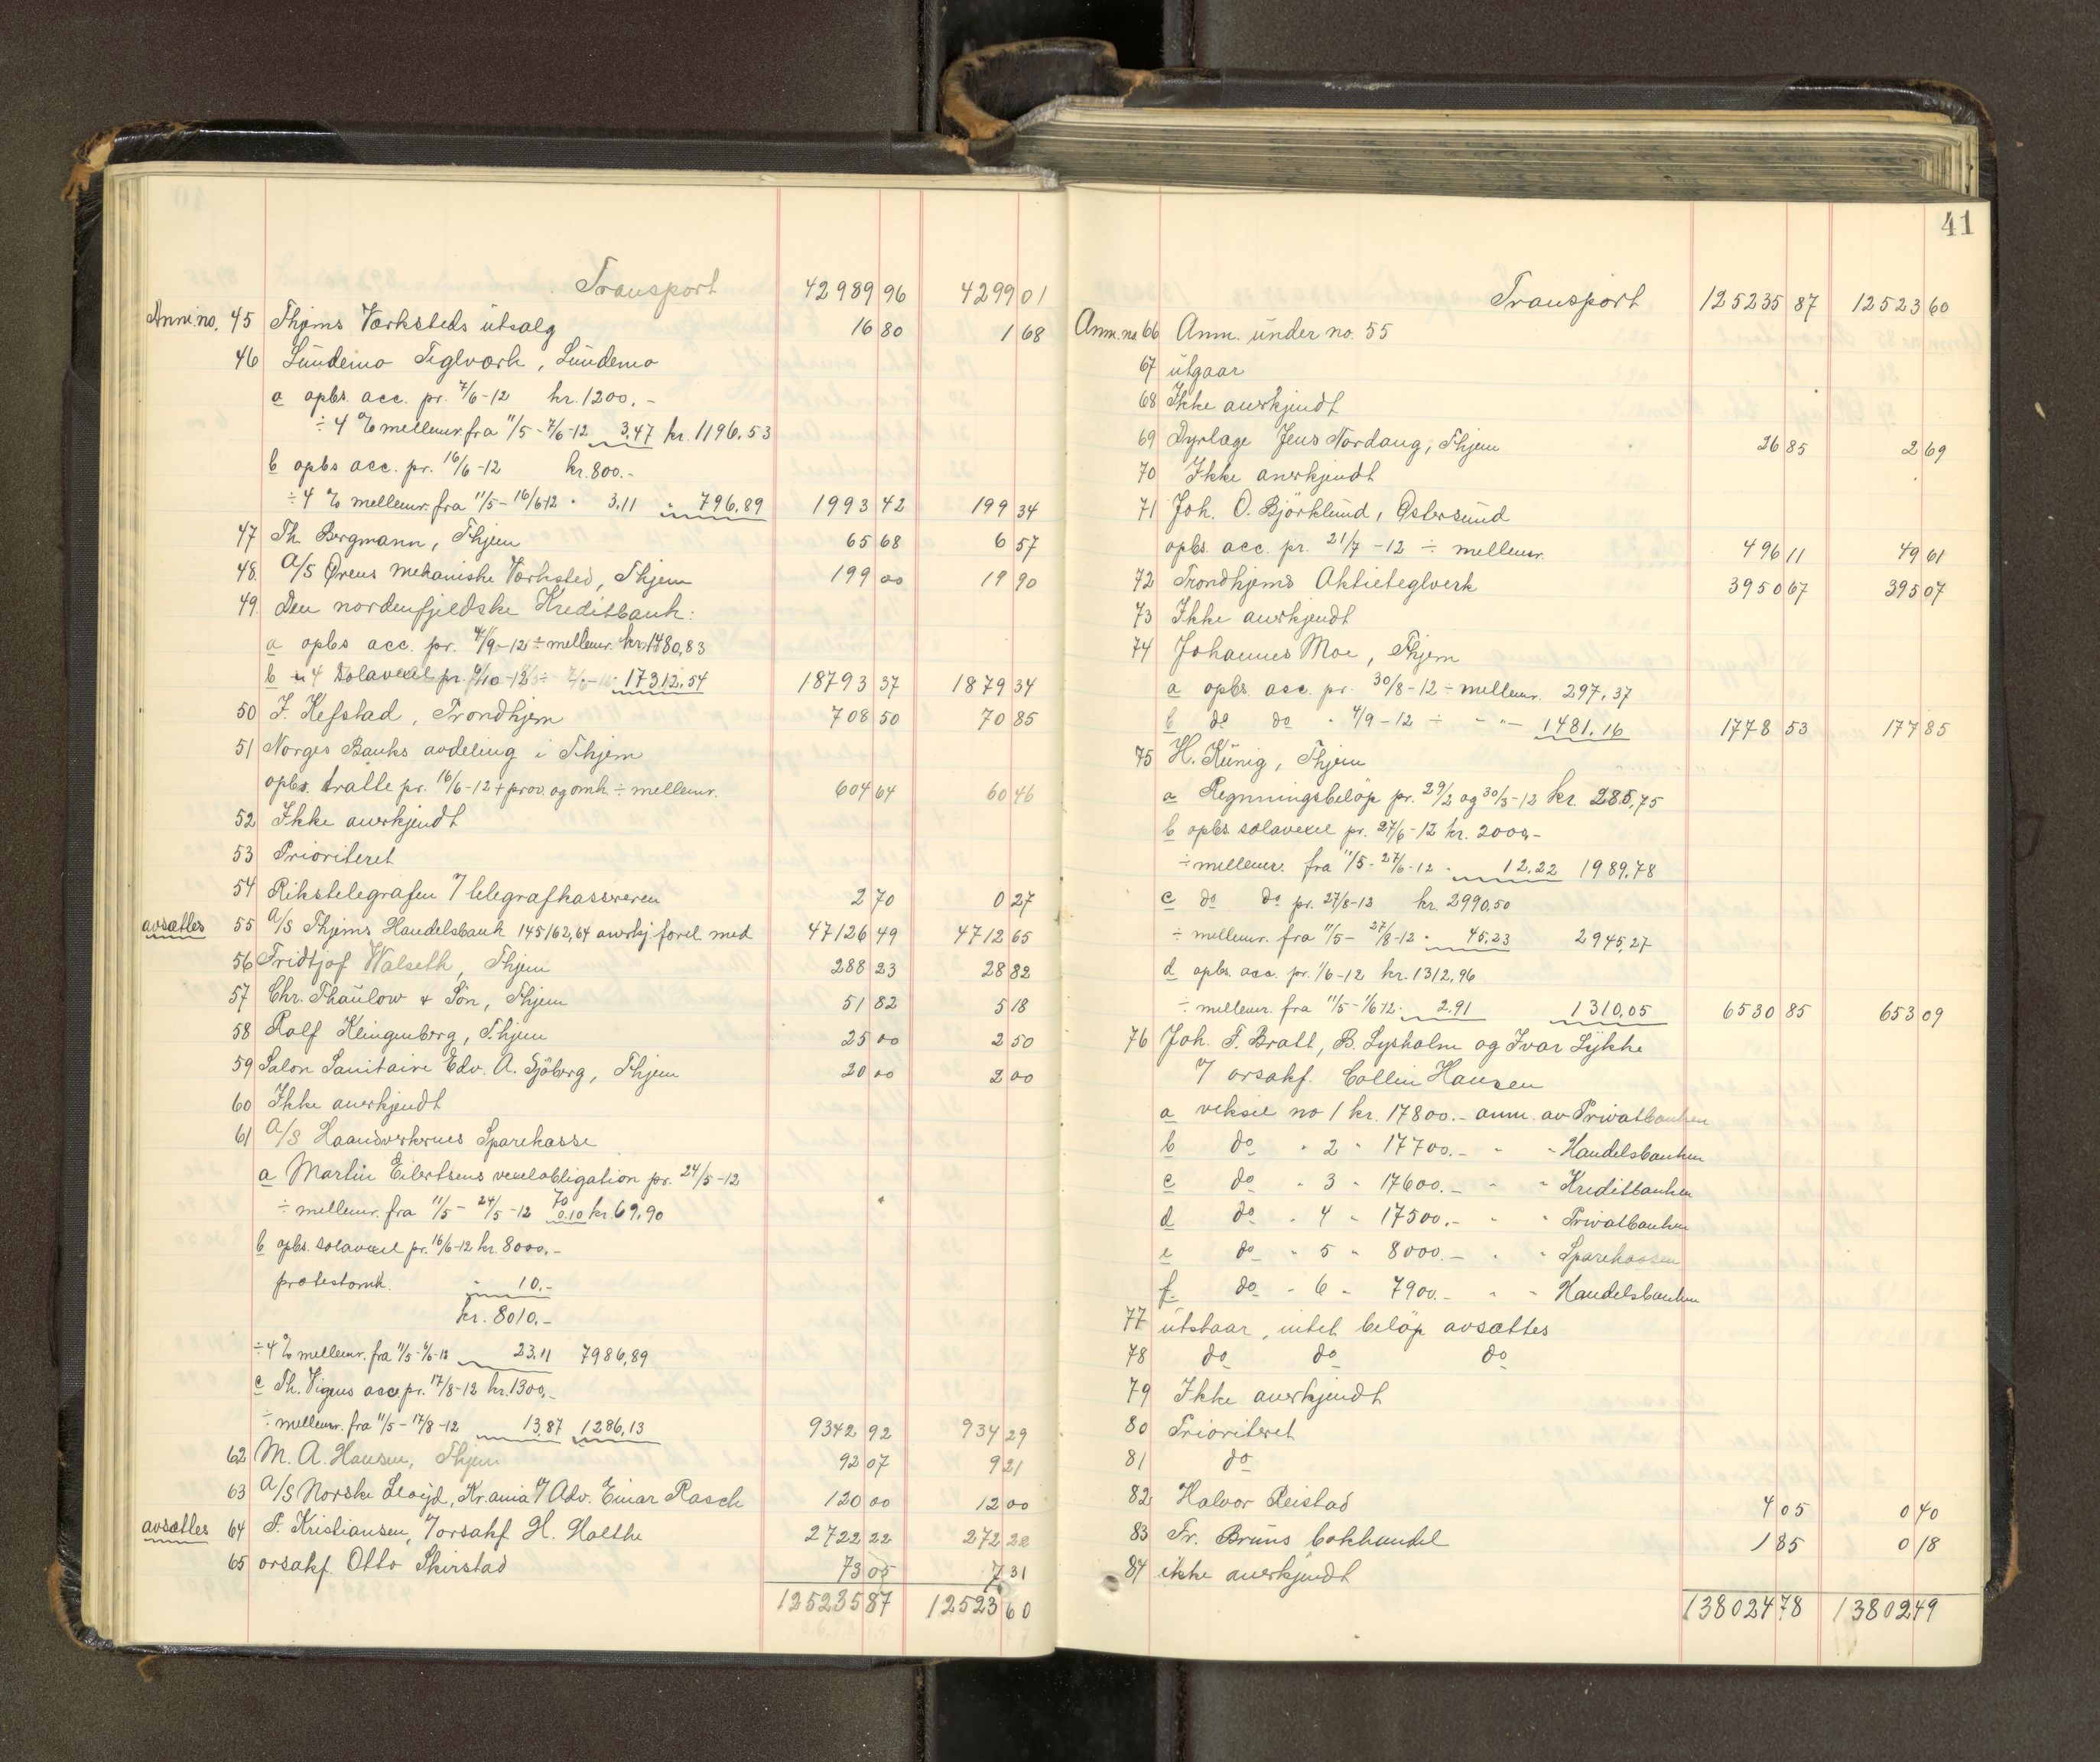 Transport 42989 96 4299 01
Anm.no. 45 Thjems Værksteds útsalg 16 80 1 68
46 Lúndemo Teglværk, Lúndemo
a opbs. acc. pr. 7/6-12 kr. 1200.-
÷ 4 % mellemr. fra 11/5 - 7/6-12 3.47 kr. 1196.53
b opbs acc. pr. 16/6-12 kr. 800.-
÷ 4 % mellemr. fra 11/5 - 16/6-12 " 3.11 " 796.89 1993 42 199 34
47 Th. Bergmann, Thjem 65 68 6 57
48. A/S Ørens mekaniske Værksted, Thjem 199 00 19 90
49 Den nordenfjeldske Kreditbank:
a opbs acc. pr. 4/9-12 ÷ mellemr. kr. 1480,83
b 4 Solavexel pr. 17312.54 18793 37 1879 34
50 J. Kefstad, Trondhjem 708 50 70 85
51 Norges Banks avdeling i Thjem
opbs. tratte pr. 16/6-12 + prov. og omk. ÷ mellemr. 604 64 60 46
52 Ikke anerkjendt
53 Prioriteret
54 Rikstelegrafen v/ telegrafkassereren 2 70 0 27
avsættes 55 A/S Thjems Handelsbank 145/62,64 anerkj. forel. med 47126 49 4712 65
56 Fridtjof Walseth, Thjem 288 23 28 82
57 Chr. Thaúlow & Sön, Thjem 51 82 5 18
58 Rolf Klingenberg, Thjem 25 00 2 50
59 Salon Sanitaire Edv. A. Sjöberg, Thjem 20 00 2 00
60 Ikke anerkjendt
61 A/S Haandverkernes Sparekasse
a Martin Eilertsens vexelobligation pr. 24/5-12
÷ mellemr. fra 11/5 - 24/5-12 70 0.10 kr. 69.90
b opbs. solavexel pr. 16/6-12 kr. 8000.-
protestomk. " 10.-
kr. 8010.-
÷ 4 % mellemr. fra 23.11 7986,89
c Th. Vigens acc pr. 17/8-12 kr. 1300.-
÷ mellemr. fra 11/5 - 17/8-12 13,87 1286,13 9342 92 934 29
62 M. A. Hansen, Thjem 92 07 9 21
63 A/S Norske Lloyd, Kr.ania v/ Adv. Einar Rasch 120 00 12 00
avsættes 64 P. Kristiansen, v/ orsakf. H. Holthe 2722 22 272 22
65 orsakf. Otto Skirstad 73 05 7 31
125235 87 12523 60
41
Transport 125235 87 12523 60
Anm.no 66 Anm. únder no. 55
67 útgaar
68 Ikke anerkjendt
69 Dyrlæge Jens Nordaug, Thjem 26 85 2 69
70 Ikke anerkjendt
71 Joh. O. Björklúnd, Östersúnd
opbs. acc. pr. 21/7-12 ÷ mellemr. 496 11 49 61
72 Trondhjems Aktieteglverk 3950 67 395 07
73 Ikke anerkjendt
74 Johannes Moe, Thjem
a opbs. acc. pr. 30/8-12 ÷ mellemr. 297.37
b do do " 4/9-12 ÷ - " - 1481.16 1778 53 177 85
75 H. Künig, Thjem
a Regnningsbelöp pr. 29/2 og 30/3-12 kr. 285,75
b opbs. solavexel pr. 27/6-12 kr. 2000.-
÷ mellemr. fra 11/5 - 27/6-12 " 12.22 1989.78
c do do pr. 27/8-12 kr. 2990,50
÷ mellemr. fra 11/5 - 27/8-12 " 45.23 2945,27
d opbs. acc. pr. 1/6-12 kr. 1312,96
÷ mellemr. fra 11/5 - 1/6-12 " 2.91 1310,05 6530 85 653 09
76 Joh. F. Bratt, B. Lysholm og Ivar Lykke
v/ orsakf. Collin Hansen
a veksel no 1 kr. 17800.- anm. av Privatbanken
b do " 2 " 17700.- " " Handelsbanken
c do " 3 " 17600.- " " Kreditbanken
d do " 4 " 17500.- " " Privatbanken
e do " 5 " 8000.- " " Sparekassen
f do " 6 " 7900.- " " Handelsbanken
77 útstaar, intet belöp avsættes
78 do do do
79 Ikke anerkjendt
80 Prioriteret
81 do
82 Halvor Reistad 4 05 0 40
83 Fr. Brúns bokhandel 1 85 0 18
84 ikke anerkjendt
138024 78 13802 49